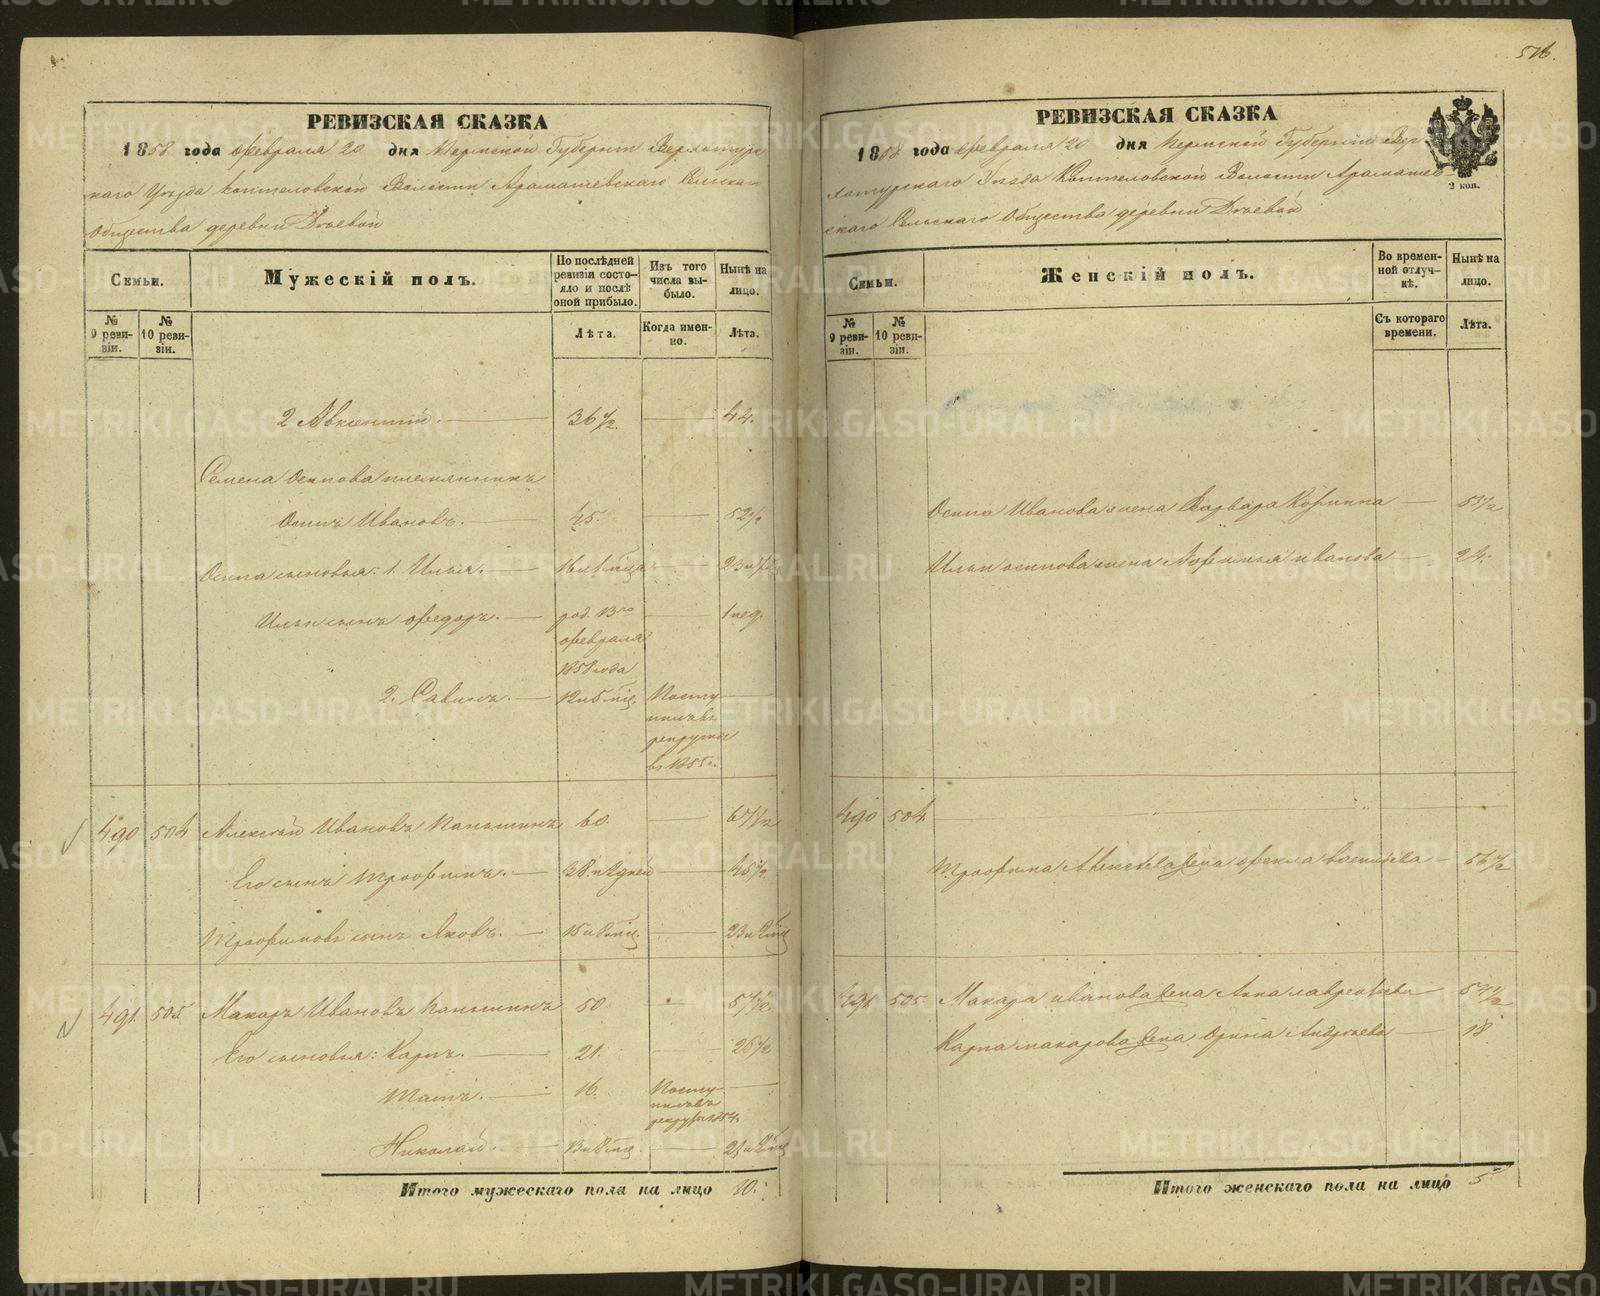 516.
РЕВИЗСКАЯ СКАЗКА
1858 года февраля 20 дня Пермской Губернiи Верхотурс
каго Уѣзда Коптеловской Волости Арамашевскаго Сельскаго
Общества деревни Дѣевой
Семьи.
Мужескiй полъ.
По послѣдней ревизiи состояло и послѣ оной прибыло.
Изъ того числа выбыло.
Нынѣ на лицо.
№ 9 ревизiи.
№ 10 ревизiи.
Лѣта.
Когда именно.
Лѣта.
2 Авксентiй. 36 1/2. 44.
Семена Осипова племянникъ
Осипъ Ивановъ. 45. 52 1/2
Осипа сыновья: 1. Илья. 23
Ильи сынъ Федоръ. род. 13го февраля 1858 года 1 нед.
2. Савинъ. 12 и 6 мѣс. Поступилъ въ рекруты въ 1855 г.
490 504 Алексѣй Ивановъ Паньшинъ 60. 67 1/2
Его сынъ Трофимъ. 38 и 2 дней 45 1/2
Трофимовъ сынъ Яковъ. 15 и 8 мѣс. 23 и 2 мѣс
491. 505. Макаръ Ивановъ Паньшинъ 50 57 1/2
Его сыновья: Карпъ. 21. 28 1/2
Титъ. 16. Поступилъ въ рекруты 1854.
Николай. 13 и 8 мѣс. 21 и 2 мѣс
Итого мужескаго пола на лицо 10.
РЕВИЗСКАЯ СКАЗКА
1858 года февраля 20 дня Пермской Губернiи Вер
хотурскаго Уѣзда Коптеловской Волости Арамашев
скаго Сельскаго Общества деревни Дѣевой
2 коп.
Семьи.
Женскiй полъ.
Во временной отлучкѣ.
Нынѣ на лицо.
№ 9 ревизiи.
№ 10 ревизiи.
Съ котораго времени.
Лѣта.
Осипа Иванова жена Варвара Козмина
Ильи осипова жена иванова 24.
490 504.
Трофима Алексѣева жена Фекла васильева
491 505. Макара иванова жена Анна лаврентьева 57 1/2
Карпа макарова жена Орина Андрѣева 18
Итого женскаго пола на лицо 5
METRIKI.GASO-URAL.RU